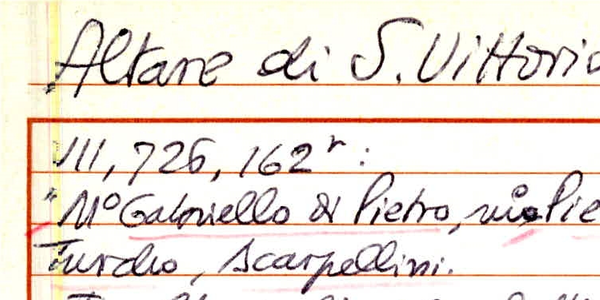 Altare di S. Vittori
VIII, 726, 162r:
"M° Gabriello di Pietro, m° Pie
Turcho, Scarpellini.